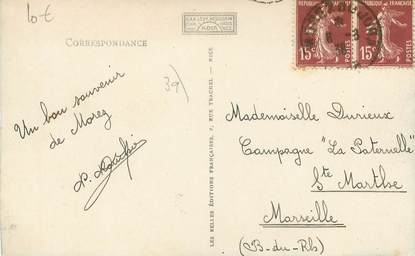 10€
CORRESPONDANCE
RÉPUBLIQUE FRANÇAISE
15c POSTES
15c POSTES
39
Un bon souvenir
de Morez
LES BELLES ÉDITIONS FRANÇAISES, 7, RUE TRACHEL - NICE
Mademoiselle Durieux
Campagne "La Paternelle"
Ste Marthe
Marseille
(B-du-Rh)